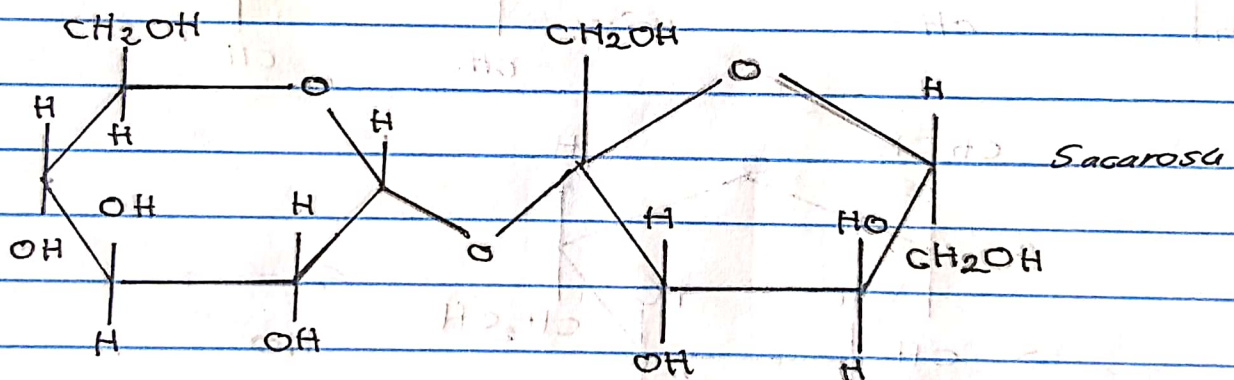 CH2OH CH2OH
O O H
H H H
Sacarosa
OH H H HO
OH O CH2OH
H OH OH H